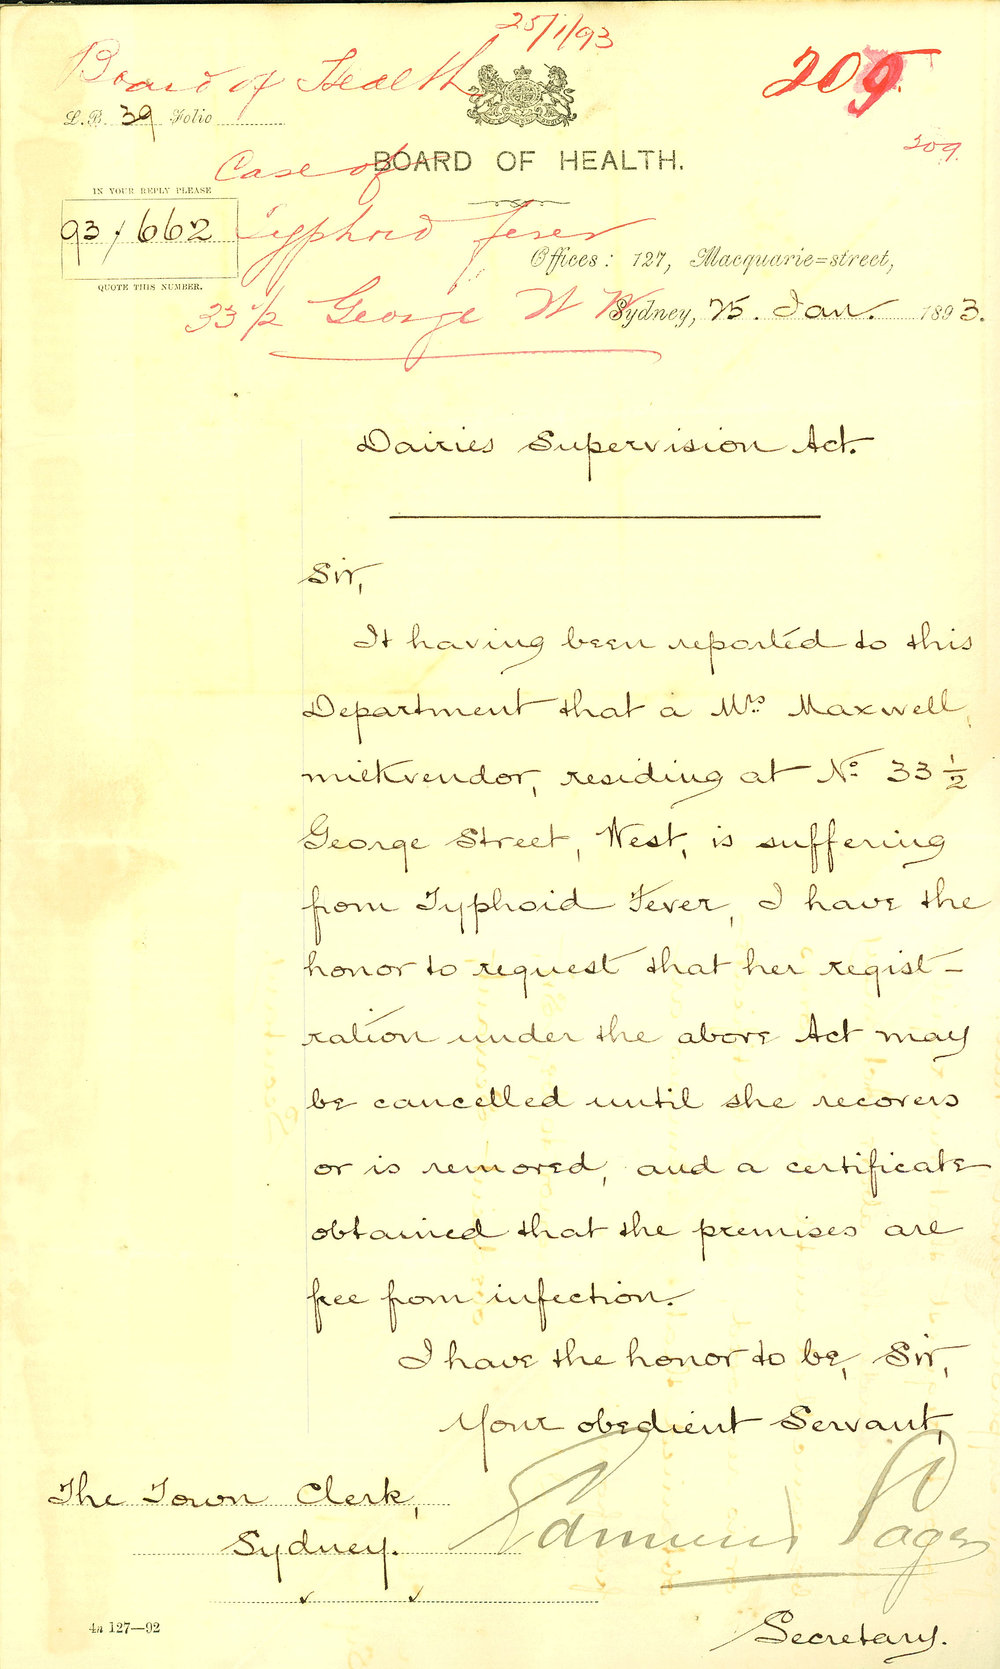 25/1/93
Board of Health
209.
L.B. 39 Folio
209.
Case of
BOARD OF HEALTH.
IN YOUR REPLY PLEASE
93/662
QUOTE THIS NUMBER.
Typhoid Fever
Offices: 127, Macquarie=street,
33 1/2 George St W
Sydney, 25. Jan. 1893.
Dairies Supervision Act.
Sir,
It having been reported to this
Department that a Mrs. Maxwell,
milkvendor, residing at No. 33 1/2
George Street, West, is suffering
from Typhoid Fever, I have the
honor to request that her regist-
ration under the above Act may
be cancelled until she recovers
or is removed, and a certificate
obtained that the premises are
free from infection.
I have the honor to be, Sir,
Your obedient Servant,
Edmund Sager
Secretary.
The Town Clerk,
Sydney.
4a 127—92